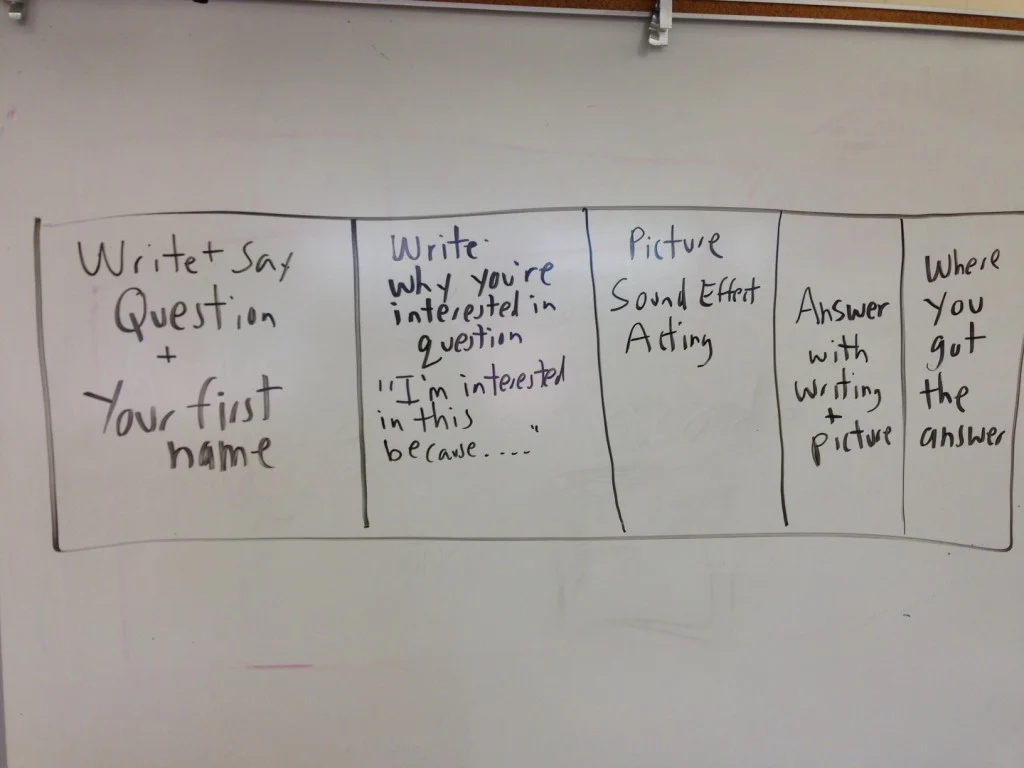 Write + Say
Question
+
Your first
name
Write
why you're
interested in
question
"I'm interested
in this
because...."
Picture
Sound Effect
Acting
Answer
with
writing
+
picture
Where
you
got
the
answer